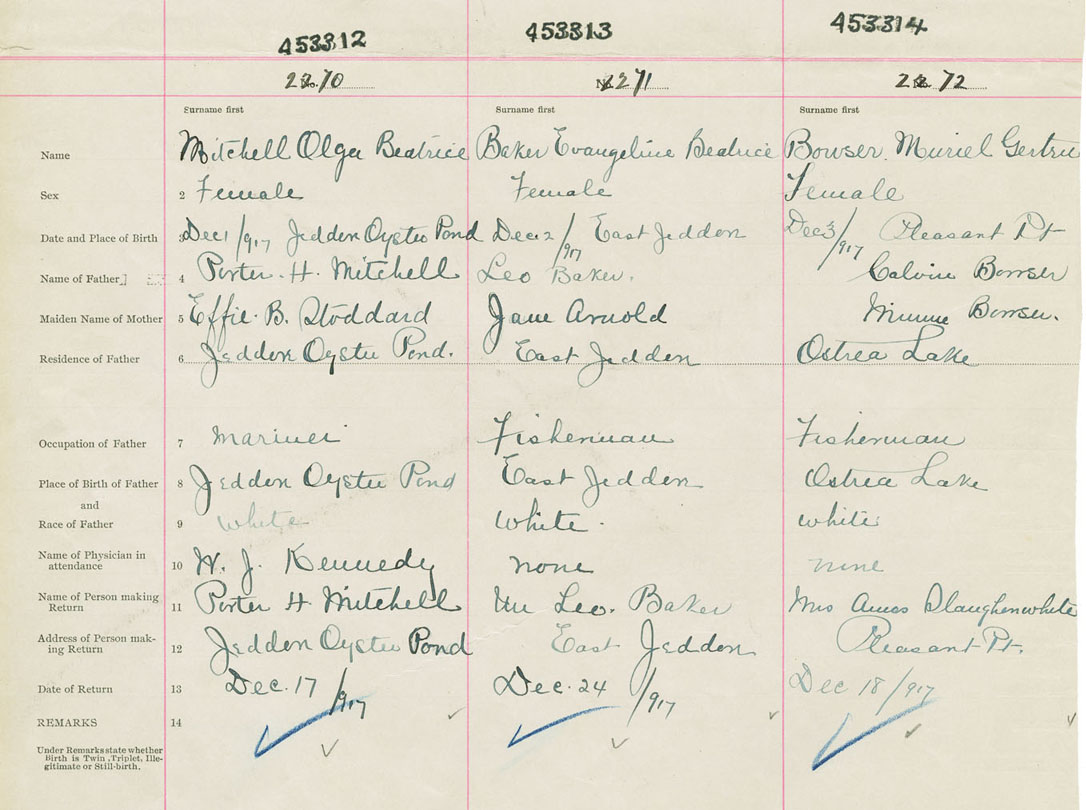 453312 453313 453314
2270 2271 2272
Surname first Surname first Surname first
Name Mitchell Olga Beatrice Baker Evangeline Beatrice Bowser. Muriel Gertru
Sex 2 Female Female Female
Date and Place of Birth 3 Dec 1/917 Jeddore Oyster Pond Dec 2/917 East Jeddore Dec 3/917 Pleasant Pt
Name of Father 4 Porter. H. Mitchell Leo Baker. Calvin Bowser
Maiden Name of Mother 5 Effie. B. Stoddard Jane Arnold Minnie Bowser.
Residence of Father 6 Jeddore Oyster Pond. East Jeddore Ostrea Lake
Occupation of Father 7 Mariner Fisherman Fisherman
Place of Birth of Father 8 Jeddore Oyster Pond East Jeddore Ostrea Lake
and
Race of Father 9 White White. White
Name of Physician in
attendance 10 W. J. Kennedy none none
Name of Person making
Return 11 Porter H Mitchell Leo. Baker Mrs Amos Slaughenwhite
Address of Person mak-
ing Return 12 Jeddore Oyster Pond East Jeddore Pleasant Pt.
Date of Return 13 Dec. 17/917 Dec. 24/917 Dec 18/917
REMARKS 14
Under Remarks state whether
Birth is Twin, Triplet, Ille-
gitimate or Still-birth.